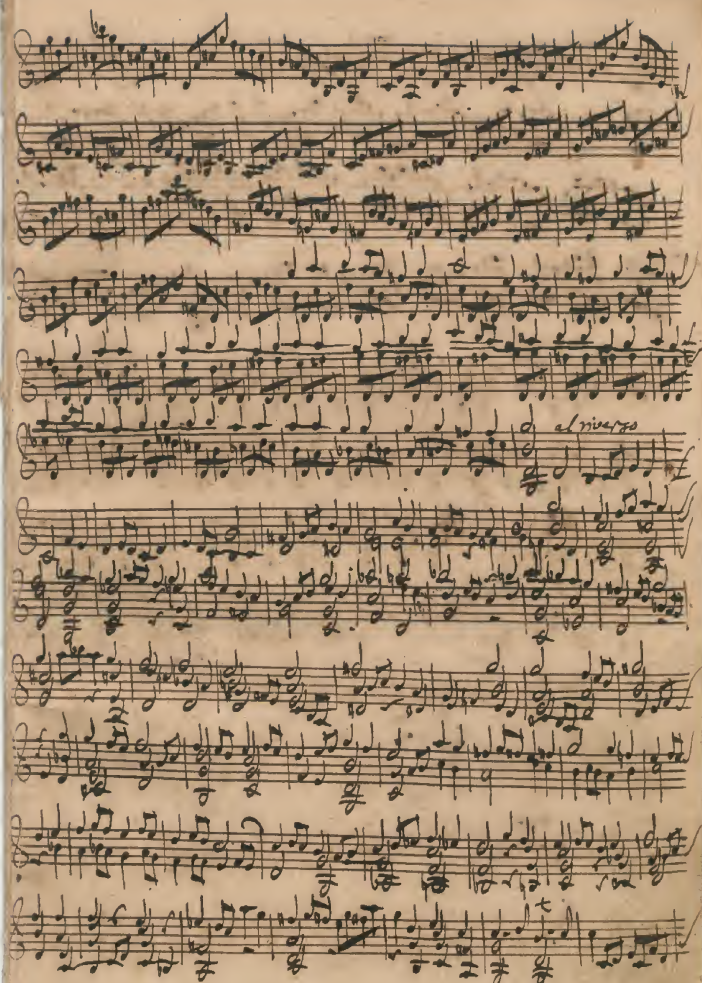 al riverso
t